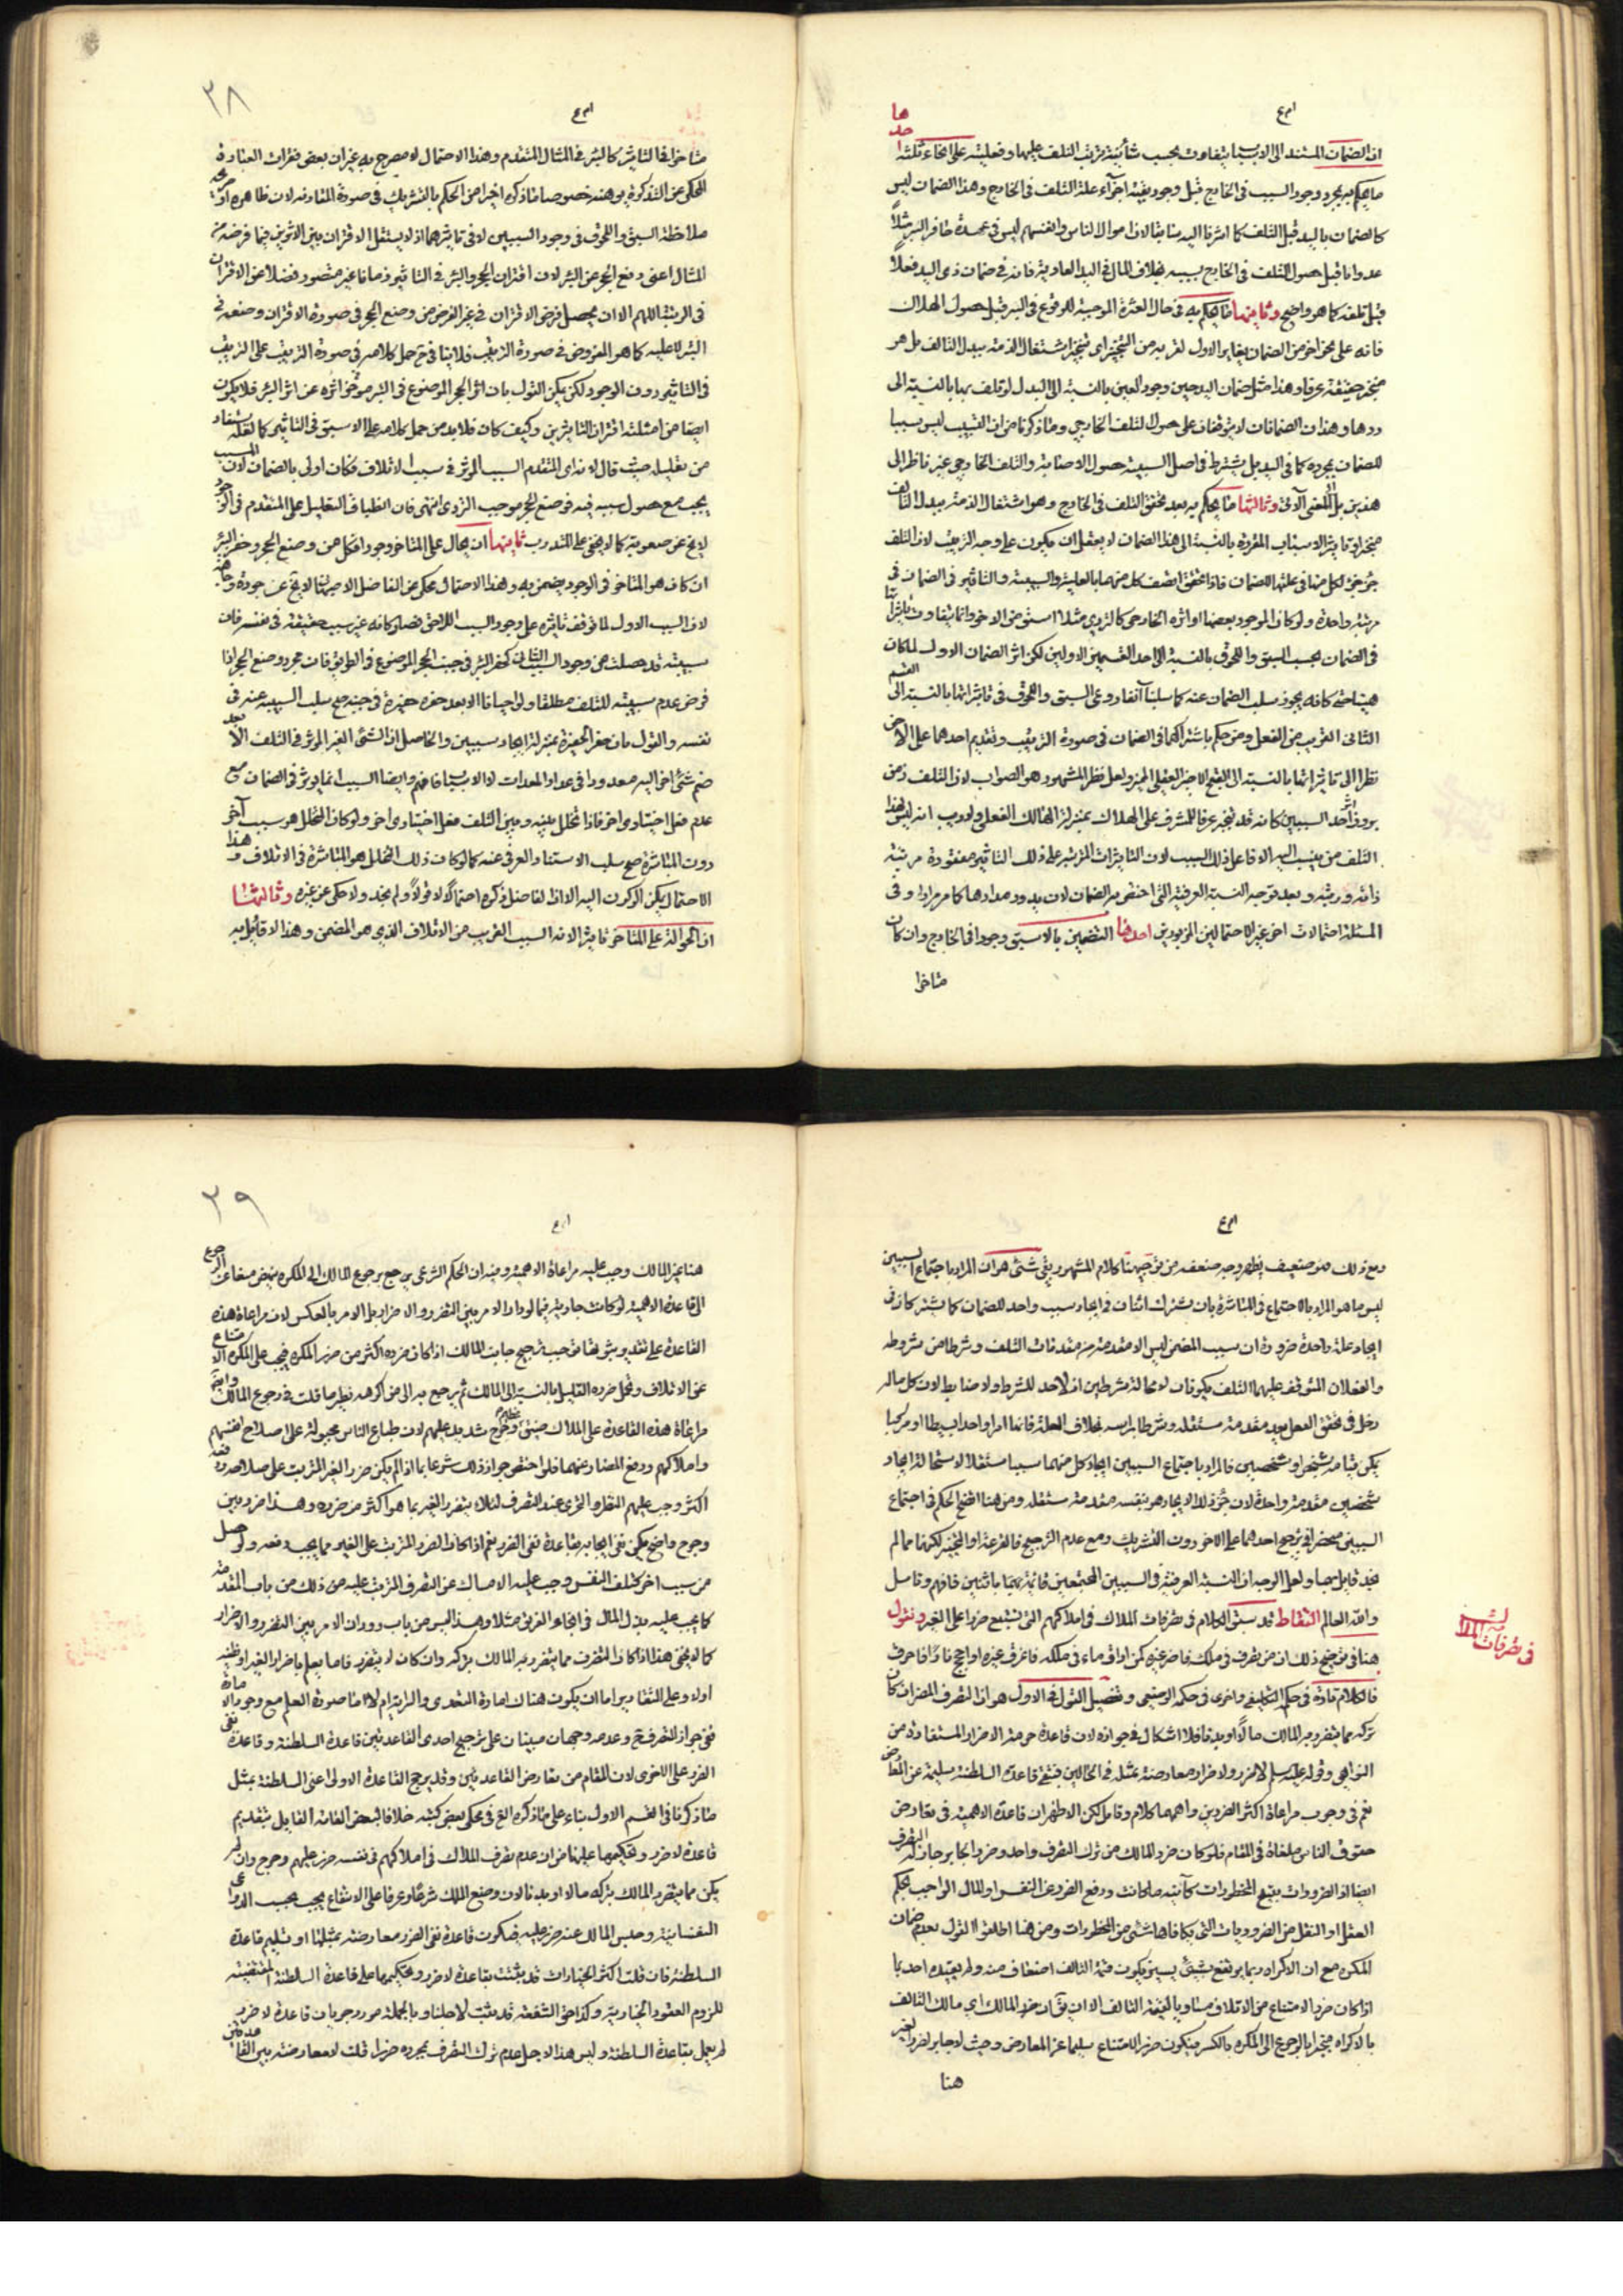 ان الضمان المستند الى الاسباب يتفاوت بحسب شأنية ترتب التلف عليها وفعليته على انحاء ثلثة احدها
ما يحكم به بمجرد وجود السبب في الخارج قبل وجود بقية اجزاء علة التلف في الخارج وهذا الضمان ليس
كالضمان باليد قبل التلف كما اشرنا اليه سابقا لان اموال الناس وانفسهم ليس في عهدة حافر البئر مثلاً
عدوانا قبل حصول التلف في الخارج بسببه بخلاف المال في اليد العادية فانه في ضمان ذي اليد فعلاً
قبل تلفه كما هو واضح وثانيها ما يحكم به في حال العثرة الموجبة للوقوع في البئر قبل حصول الهلاك
فانه على نحو اخر من الضمان يغاير الاول لقربه من التنجيز اي تنجيز اشتغال الذمة ببدل التالف بل هو
منجز حقيقة عرفا وهذا مثل ضمان اليد حين وجود العين بالنسبة الى البدل لو تلف بها بالنسبة الى
ردها وهذان الضمانان لا يتوقفان على حصول التلف الخارجي وما ذكرنا من ان التسبيب ليس سببا
للضمان بمجرده كما في اليد بل يشترط في اصل السببية حصول الاصابة والتلف الخارجي غير ناظر الى
هذين بل المعنى الآتي وثالثها ما يحكم به بعد تحقق التلف في الخارج وهو اشتغال الذمة ببدل التالف
منجزا وتاثير الاسباب المفردة بالنسبة الى هذا الضمان لا يعقل ان يكون على وجه الترتيب لان التلف
جزء اخير لكل منها في علته للضمان فاذا تحقق اتصف كل منهما بالعلية والسببية والتاثير في الضمان في
مرتبة واحدة ولو كان الموجود بعضها او اثره الخارجي كالتردي مثلا اسبق من الاخر وانما يتفاوت تاثيراتها
في الضمان بحسب السبق واللحوق بالنسبة الى احد القسمين الاولين لكن اثر الضمان الاول لما كان
القسم
الثاني القريب من الفعل ومن حكم باشتراكهما في الضمان في صورة الترتيب وتقديم احدهما على الاخر
نظرا الى
التلف من ينسب اليه الا فاعل ذلك السبب لان التاثيرات المترتبة على ذلك التاثير مفقودة مرتبة
ذاته ورتبته وبعد توجه النسبة العرفية التي اختص به الضمان لان يدور مدارها كما مر مرارا وفي
المسئلة احتمالات اخر غير الاحتمالين المزبورين احدها التضمين بالاسبق وجودا في الخارج وان كان
متاخرا
٣٨
متاخرا في التاثير كالبئر في المثال المتقدم وهذا الاحتمال لا مصرح به غير ان بعض فقرات العبارة
المحكي عن التذكرة يوهنه خصوصا ما ذكره اخيرا من الحكم بالتشريك في صورة المقارنة لان ظاهره
ملاحظة السبق واللحوق في وجود السببين لا في تاثيرهما اذ لا يستقل الاقتران بين الاثرين فيما فرضه من
المثال اعني وضع الحجر عن البئر لان اقتران الحجر والبئر في التاثير زمانا غير متصور فضلا عن الاقتران
في الرتبة اللهم الا ان يحصل فرض الاقتران في غير الفرض من وضع الحجر في صورة الاقتران وضعه في
البئر لا عليه كما هو المفروض في صورة الترتيب فلا ينافي ح حمل كلامه في صورة الترتيب على الترتيب
في التاثير دون الوجود لكن يمكن القول بان اثر الحجر الموضوع في البئر مؤخر اثره عن اثر البئر فلا يكون
ايضا من امثلة اقتران التاثيرين وكيف كان فلا بد من حمل كلامه على الاسبق في التاثير كما لعله يستفاد
من تعليله حيث قال لانه اي المتقدم السبب المؤثر في سبب الاتلاف فكان اولى بالضمان لان المسبب
يجب مع حصول سببه فيه فوضع الحجر موجب للتردي انتهى فان انطباق التعليل على المتقدم في الوجود
لا يخ عن صعوبة كما لا يخفى على المتدرب ثانيها ان يحال على المتاخر وجودا فكل من وضع الحجر وحفر البئر
ان كان هو المتاخر في الوجود يضمن به وهذا الاحتمال محكي عن الفاضل الاصبهاني لا يخ عن جودة وجاهة
لان السبب الاول لما توقف تاثيره على وجود السبب اللاحق فصار كانه غير سبب حقيقة في نفسه فان
سببيته قد حصلت من وجود السبب الثاني كحفر البئر في جنب الحجر الموضوع في الطريق فان مجرد وضع الحجر اذا
فرض عدم سببيته للتلف مطلقا ولو احيانا الا بعد حفر حفيرة في جنبه صح سلب السببية عنه في
نفسه والقول بان حفر الحفيرة بمنزلة ايجاد سببين والحاصل ان الشئ الغير المؤثر في التلف الا بعد
ضم شئ اخر اليه معدود في عداد المعدات لا الاسباب فافهم وايضا السبب انما يؤثر في الضمان مع
عدم فعل اختياري اخر فاذا تخلل بينه وبين التلف فعل اختياري اخر ولو كان المتخلل هو سبب آخر
دون المباشرة صح سلب الاستناد العرفي عنه كما لو كان ذلك المتخلل هو المباشرة في الاتلاف وهذا
الاحتمال يمكن الركون اليه الا ان الفاضل ذكره احتمالا لا قولاً ولم نجد ولا حكى عن غيره وثالثها
ان الحوالة على المتاخر تاثيرا لانه السبب القريب من الاتلاف الذي هو المضمن وهذا لا قائل به
ومع ذلك هو ضعيف يظهر وجه ضعفه من توجيهنا كلام المشهور بقي شئ هو ان المراد باجتماع السببين
ليس ما هو المراد بالاجتماع في المباشرة بان يشترك اثنان في ايجاد سبب واحد للضمان كما يشتركان في
ايجاد علة واحدة ضرورة ان سبب المضمن ليس الا مقدمة من مقدمات التلف وشرطا من شروطه
والفعلان المتوقف عليهما التلف يكونان لا محالة شرطين اذ لا حد للشرط ولا ضابط لان كل ماله
دخل في تحقق الفعل يعد مقدمة مستقله وشرطا براسه بخلاف العلة فانها امر واحد بسيطا او مركبا
يمكن قيامه بشخص او شخصين فالمراد باجتماع السببين ايجاد كل منهما سببا مستقلا لاستحالة ايجاد
شخصين مقدمة واحدة لان جزء ذلك الايجاد هو بنفسه مقدمة مستقله ومن هنا اتضح الحكم في اجتماع
السببين منحصر في ترجيح احدهما على الاخر دون التشريك ومع عدم الترجيح فالقرعة او التخيير لكنهما مما لم
نجد قايل بهما ولعل الوجه ان النسبة العرفية في السببين المجتمعين قائمة بهما باثنين فافهم وتامل
والله العالم التقاط قد سبق الكلام في تصرفات الملاك في املاكهم التي يستتبع ضررا على الغير ونقول
في تصرفات الملاك
هنا في توضيح ذلك ان من تصرف في ملك فاضر غيره كمن اراق ماء في ملكه فاغرق غيره او اجج نارا فاحرق
فالكلام تارة في حكم التكليفي واخرى في حكم الوضعي وتفصيل القول في الاول هو ان التصرف المضر ان كان
تركه مما يتضرر به المالك مالاً او بدنا فلا اشكال في جوازه لان قاعدة حرمة الاضرار المستفادة من
النواهي وقوله عليه سلم لا ضرر ولا ضرار معارضة بمثله في الحالين فتبقى قاعدة السلطنة سليمة عن المعارض
نعم في وجوب مراعاة اكثر الضررين واهمهما كلام وتامل لكن الاظهر ان قاعدة الاهمية في تعارض
حقوق الناس ملغاة في المقام فلو كان ضرر المالك من ترك التصرف واحد وضرر الجابر جاز له التصرف
ايضا اذ الضرورات يتبع المحظورات كآئنة ما كانت ودفع الضرر عن النفس او المال الواجب بحكم
العقل او النقل من الضروريات التي يكافاها شئ من المحظورات ومن هنا اطلقوا القول بعدم ضمان
المكره مع ان الاكراه ربما يرتفع بشئ يسير ويكون قيمة التالف اضعاف منه ولم يقيده احد بما
اذا كان ضرر الامتناع من الاتلاف مساويا لقيمة التالف الا ان يق ان ضرر المالك اي مالك التالف
بالاكراه منجبر بالرجوع الى المكره بالكسر فيكون ضرر الامتناع سليما عن المعارض وحيث لا جابر لضرر الغير
هنا
٣٩
هنا غير المالك وجب عليه مراعاة الاهمية وفيه ان الحكم الشرعي برجع برجوع المالك الى المكره ينهض مبنيا عن الرجوع
الى قاعدة الاهمية لو كانت جارية فيما لو دار الامر بين التضرر والاضرار بل الامر بالعكس لان مراعاة هذه
القاعدة على تقديرثبوتها توجب ترجيح جانب المالك اذا كان ضرره اكثر من ضرر المكره فيجب على المكره الامتناع
عن الاتلاف وتحمل ضرره القليل بالنسبة الى المالك ثم يرجع به الى من اكرهه نظير ما قلت في رجوع المالك وايضا
مراعاة هذه القاعدة على الملاك ضيق وحرج عظيم شديد عليهم لان طباع الناس مجبولة على اصلاح انفسهم
واملاكهم ودفع المضار عنهما فلو اختص جواز ذلك شرعا بما اذا لم يكن ضرر الغير المترتب على صلاحه ودفعه
اكثر وجب عليهم النظر والتحري عند التصرف لئلا يتضرر الغير بما هو اكثر من ضرره وهذا ضرر بين
وحرج واضح يمكن نفي ايجابه بقاعدة نفي الضرر نعم اذا كان الضرر المترتب على الغير مما يجب دفعه ولو حصل
من سبب اخر كتلف النفس وجب عليه الامساك عن التصرف المترتب عليه من ذلك من باب المقدمة
كما يجب عليه بذل المال في انجاء الغريق مثلا وهذا ليس من باب دوران الامر بين التضرر والاضرار
كما لا يخفى هذا اذا كان التصرف مما يتضرر به المالك بتركه وان كان لا يتضرر فاما يعلم باضرار الغير او ظنه
اولا وعلى التقادير اما ان يكون هناك امارة التعدي والسراية ام لا اما صورة العلم مع وجود الامارة
ففي جواز التصرف ح وعدمه وجهان مبنيان على ترجيح احدى القاعدتين قاعدة السلطنة وقاعدة نفي
الضرر على الاخرى لان المقام من تعارض القاعدتين وقد يرجح القاعدة الاولى اعني السلطنة بمثل
ما ذكرنا في القسم الاول بناء على ما ذكره الع في محكي بعض كتبه خلافا لبعض العامة القايل بتقديم
قاعدة لا ضرر وتحكيمها عليها من ان عدم تصرف الملاك في املاكهم في نفسه ضرر عليهم وحرج وان لم
يكن مما يتضرر المالك بتركه مالا او بدنا لان وضع الملك شرعا وعرفا على الانتفاع به بحسب الدواعي
النفسانية وحبس المالك عنه ضرر عليه فيكون قاعدة نفي الضرر معارضة بمثلها او تسليم قاعدة
السلطنة فان قلت اكثر الخيارات قد يثبتت بقاعدة لا ضرر وتحكيمها على قاعدة السلطنة المقتضية
للزوم العقود الخيارية وكذا حق الشفعة قد يثبت لاجلها وبالجملة مورد جريان قاعدة لا ضرر
لم يعمل بقاعدة السلطنة وليس هذا الا جل عدم ترك التصرف بمجرده ضررا قلت لا معارضة بين القاعدتين